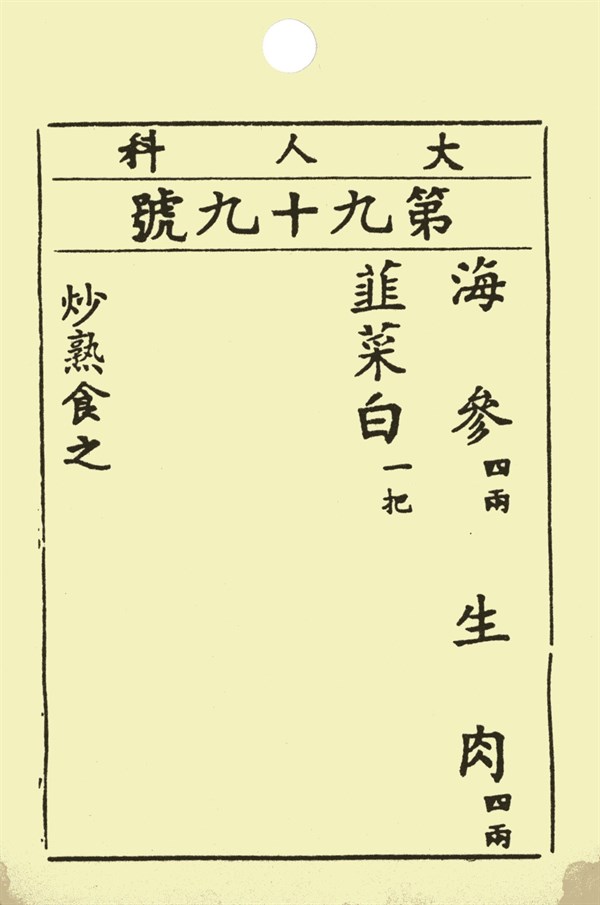 大人科
第九十九號
海參四兩 生肉四兩
韮菜白一把
炒熟食之